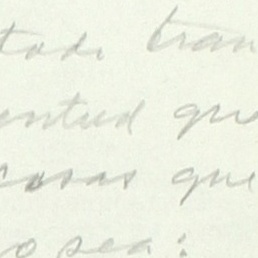 tado tran
entud que
cosas que
o sea: